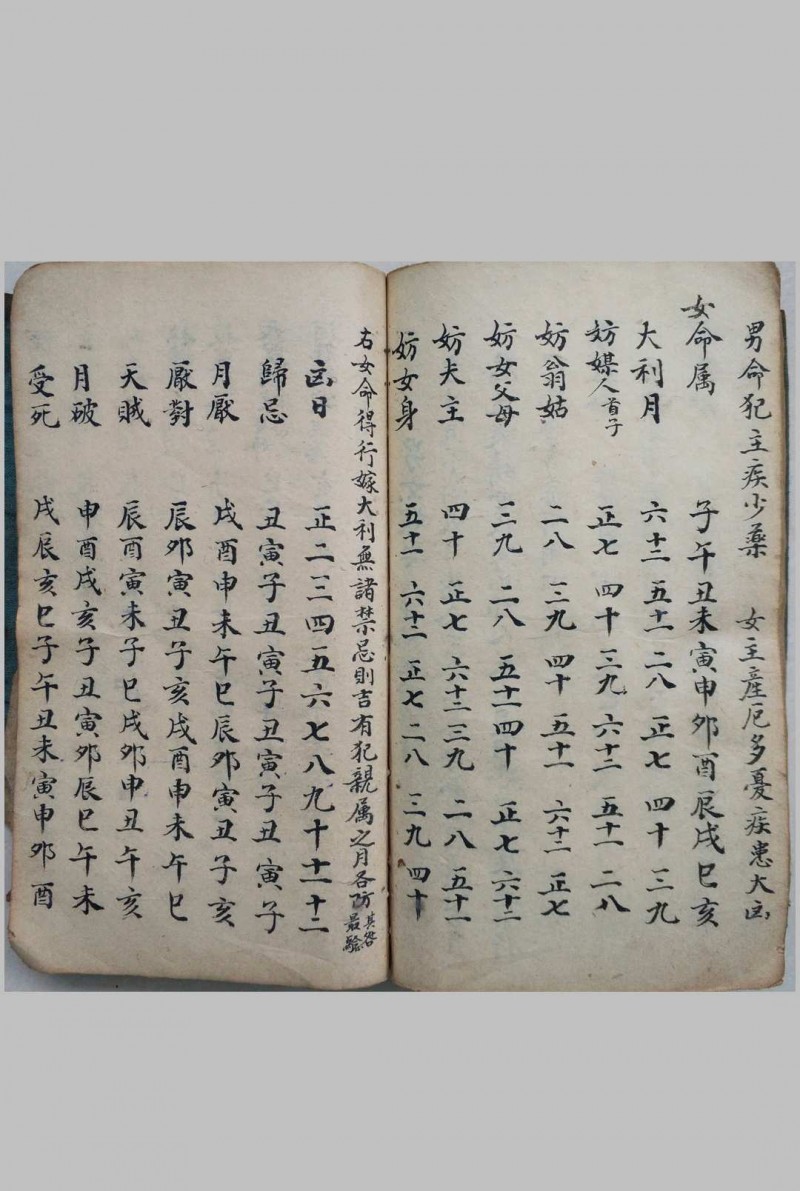 男命犯主疾少藥 女主産厄多憂疾患大凶
女命属 子午丑未寅申卯酉辰戌巳亥
大利月 六十二 五十一 二八 正七 四十 三九
妨媒人首子 正七 四十 三九 六十二 五十一 二八
妨翁姑 二八 三九 四十 五十一 六十二 正七
妨女父母 三九 二八 五十一 四十 正七 六十二
妨夫主 四十 正七 六十二 三九 二八 五十一
妨女身 五十一 六十二 正七 二八 三九 四十
右女命得行嫁大利無諸禁忌則吉有犯親属之月各防其咎最驗
凶日 正二三四五六七八九十十一十二
歸忌 丑寅子丑寅子丑寅子丑寅子
月厭 戌酉申未午巳辰卯寅丑子亥
厭對 辰卯寅丑子亥戌酉申未午巳
天賊 辰酉寅未子巳戌卯申丑午亥
月破 申酉戌亥子丑寅卯辰巳午未
受死 戌辰亥巳子午丑未寅申卯酉